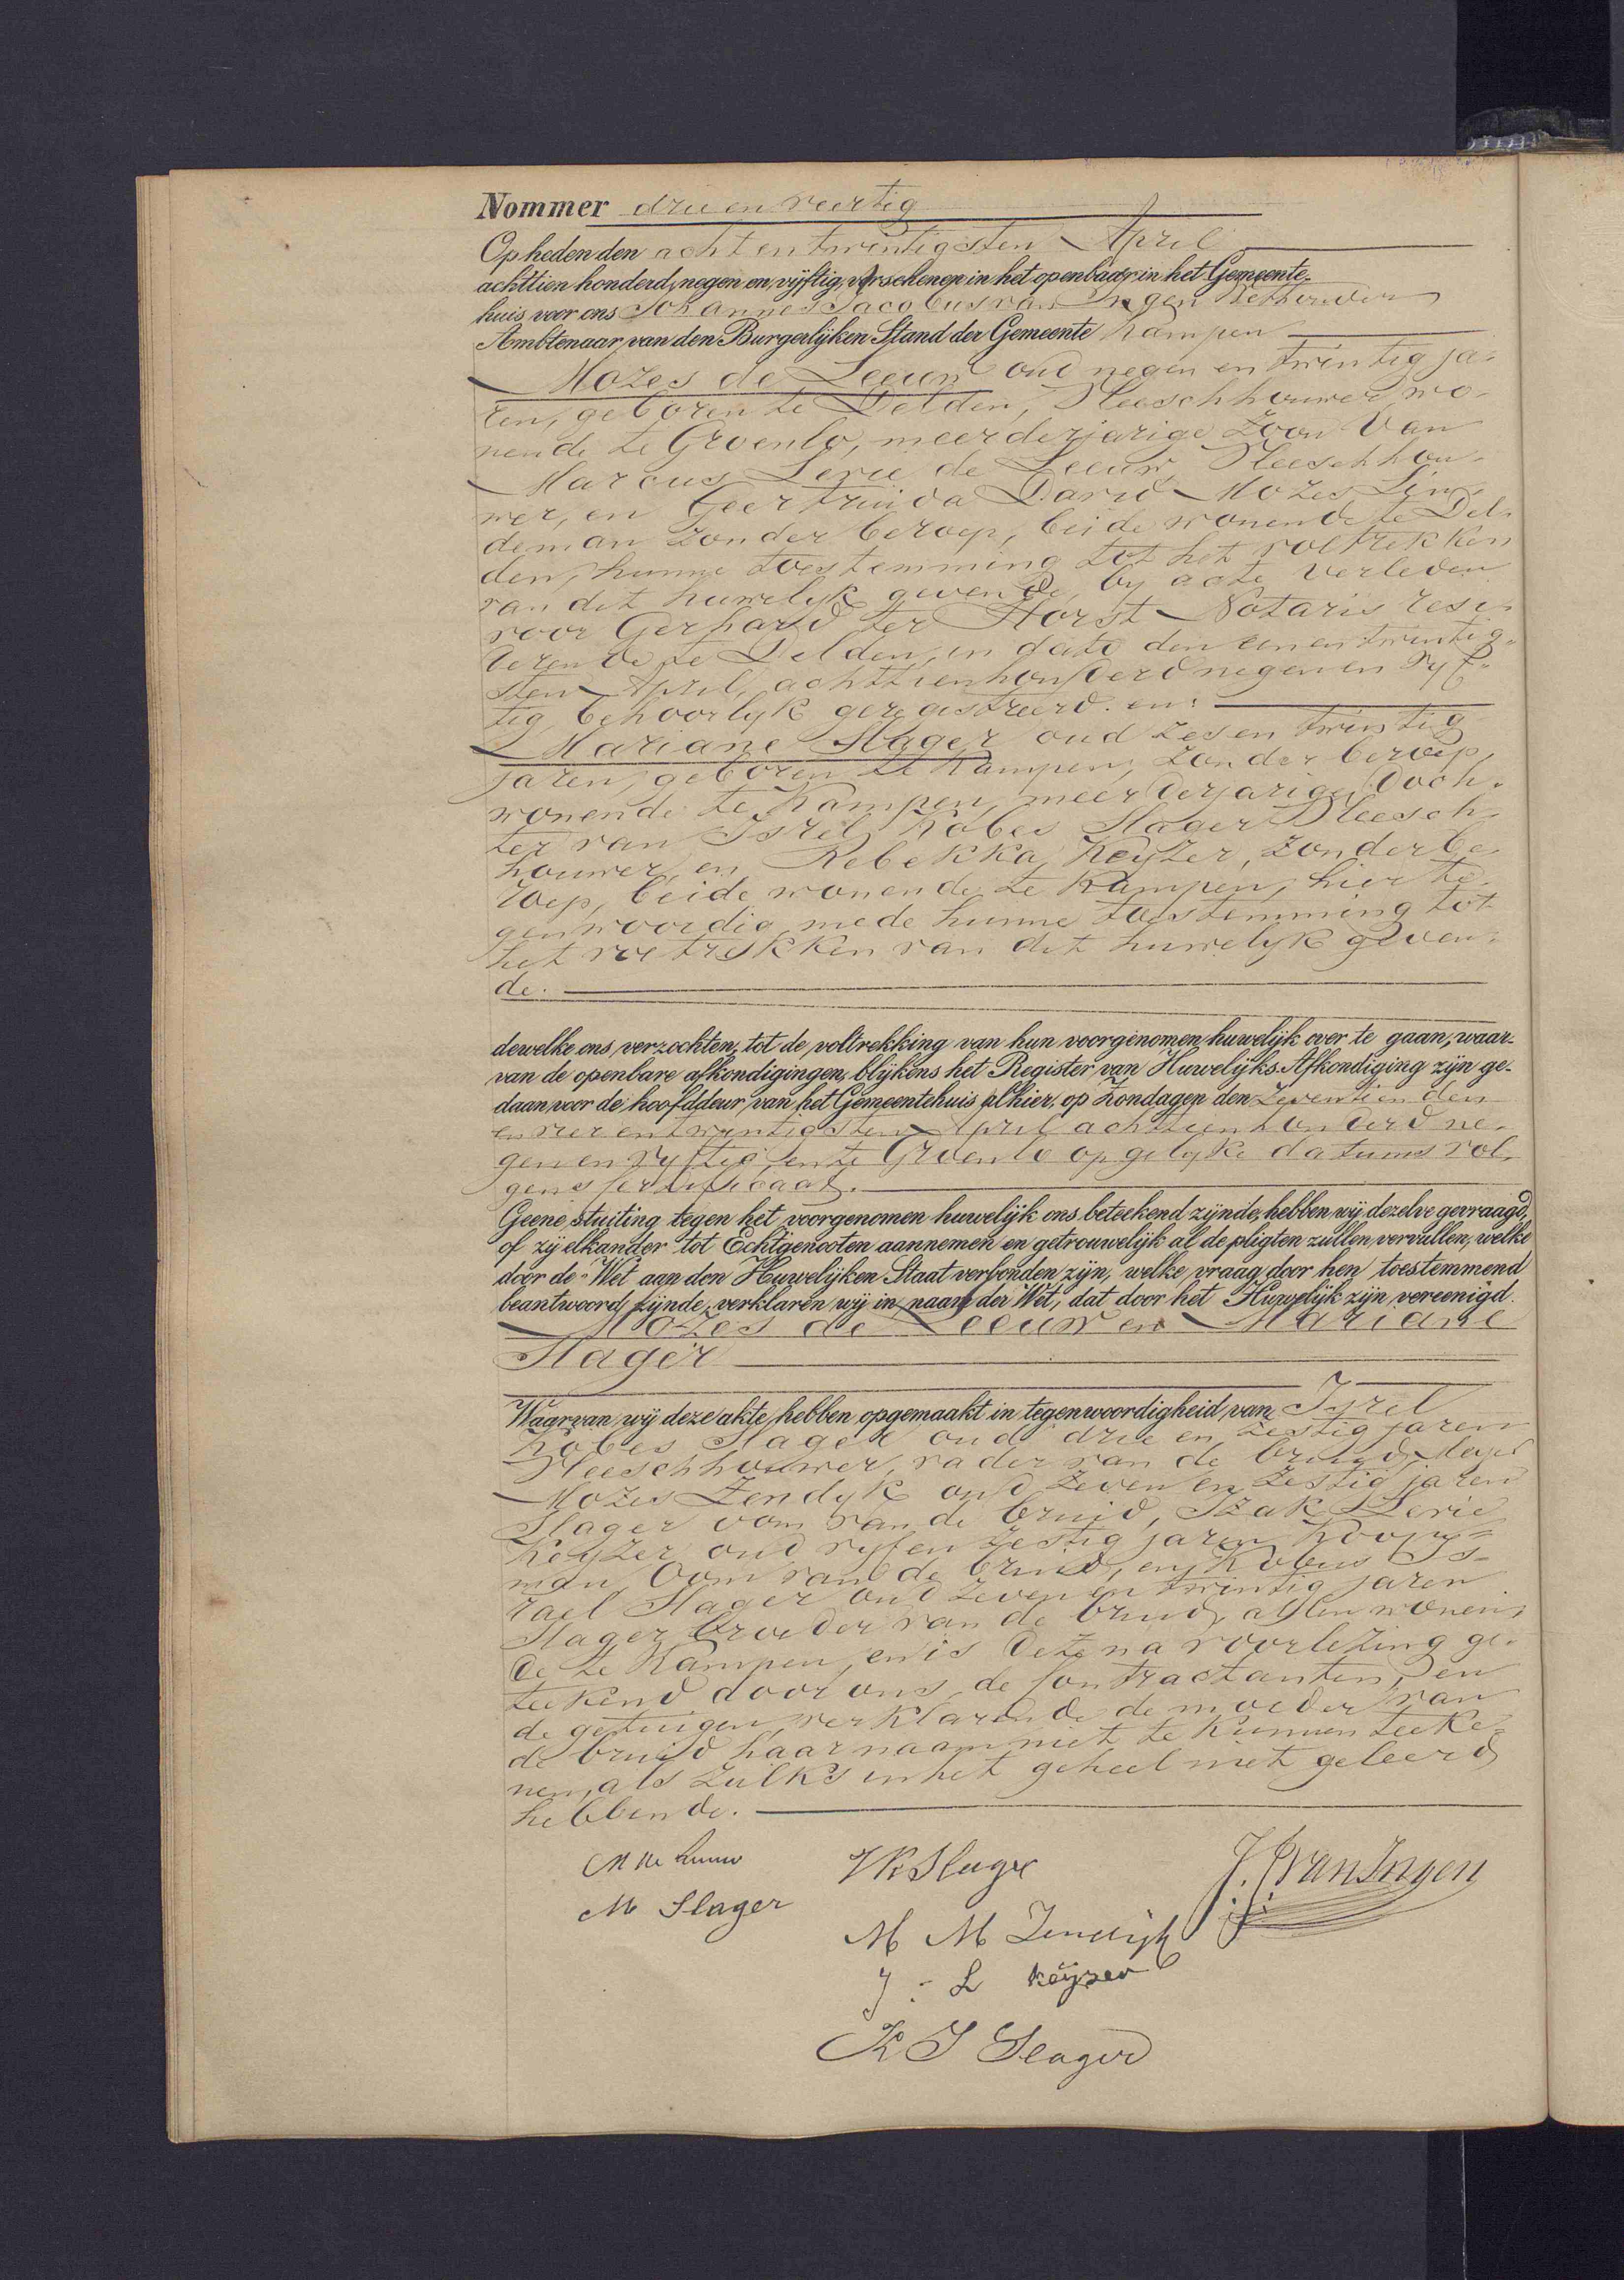 Nommer drie en veertig
Op heden den acht en twintigsten April
achttien honderd, negen en vijftig, verschenen in het openbaar in het Gemeente-
huis voor ons Johannes Jacobus van Ingen Wethouder
Ambtenaar van den Burgerlijken Stand der Gemeente Kampen
Mozes de Leeuw oud negen en twintig ja-
ren, geboren te Delden, Vleeschhouwer, wo-
nende te Groenlo, meerderjarige zoon van
Marcus Levie de Leeuw Vleeschhou-
wer, en Geertruida David Mozes Lin-
deman zonder beroep, beide wonende te Del-
den, hunne toestemming tot het voltrekken
van dit huwelyk gevende, by acte verleden
voor Gerhard ter Horst Notaris resi-
derende te Delden, in dato den een en twintig-
sten April, achttienhonderd negen en vyf-
tig behoorlyk geregistreerd. en:
Mariane Slager oud zes en twintig
jaren, geboren te Kampen, zonder beroep,
wonende te Kampen, meerderjarige doch-
ter van Isrel Kobes Slager Vleesch-
houwer, en Rebekka Keyzer, zonder be-
roep, beide wonende te Kampen, hier te-
genwoordig mede hunne toestemming tot
het voltrekken van dit huwelyk geven-
de.
dewelke ons verzochten, tot de voltrekking van hun voorgenomen huwelijk over te gaan, waar-
van de openbare afkondigingen, blijkens het Register van Huwelijks-Afkondiging zijn ge-
daan voor de hoofddeur van het Gemeentehuis alhier, op Zondagen den zeventienden
en vier en twintigsten April achttienhonderd ne-
gen en vyftig, en te Groenlo op gelyke datums vol-
gens certificaat.
Geene stuiting tegen het voorgenomen huwelijk ons beteekend zijnde, hebben wij dezelve gevraagd,
of zij elkander tot Echtgenooten aannemen en getrouwelijk al de pligten zullen vervullen, welke
door de Wet aan den Huwelijken Staat verbonden zijn, welke vraag door hen toestemmend
beantwoord zijnde, verklaren wij in naam der Wet, dat door het Huwelijk zijn vereenigd
Mozes de Leeuw en Mariane
Slager
Waarvan wij deze akte hebben opgemaakt in tegenwoordigheid van Isrel
Kobes Slager oud drie en zestig jaren
Vleeschhouwer, vader van de bruid,
Mozes Zendyk oud zeven en zestig jaren
Slager oom van de bruid, Izak Levie
Keyzer oud vyf en zestig jaren Koop-
man Oom van de bruid, en Kobus Is-
rael Slager oud zeven en twintig jaren
Slager broeder van de bruid, allen wonen-
de te Kampen, en is deze na voorlezing ge-
teekend door ons, de contractanten, en
de getuigen, verklarende de moeder van
de bruid haar naam niet te kunnen teeke-
nen, als zulks in het geheel niet geleerd
hebbende.
M de Leeuw
IK Slager
J. J. van Ingen
M Slager
M M Zendijk
J. L Keijzer
K I Slager